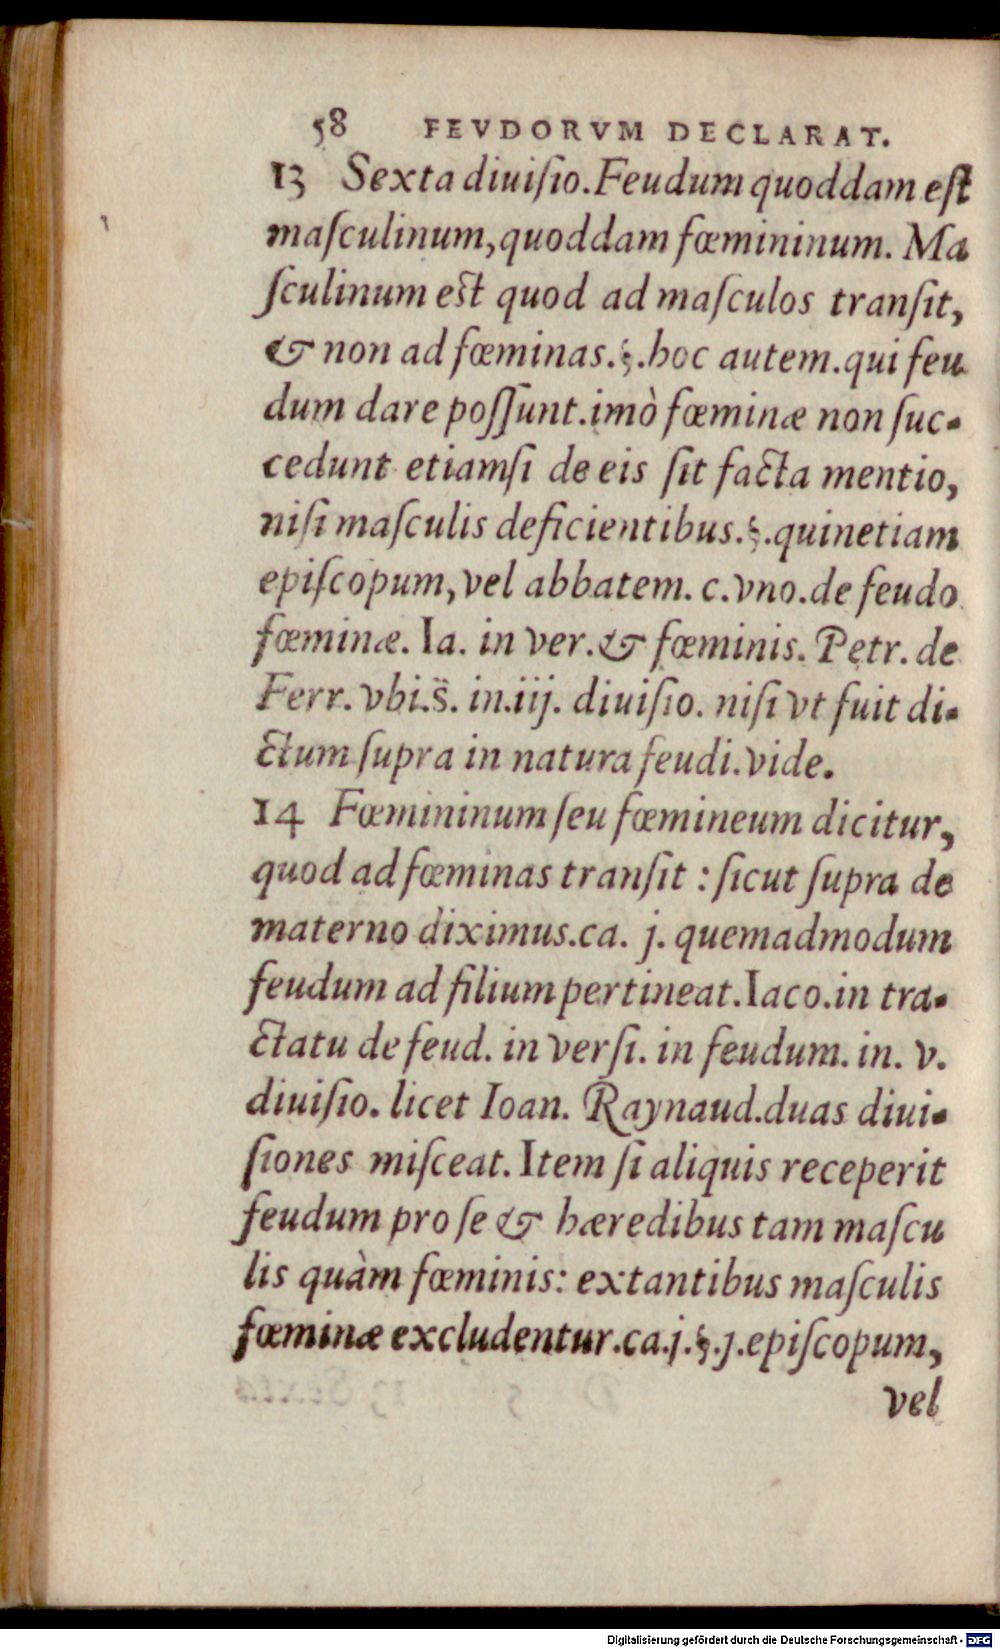 58 FEVDORVM DECLARAT.
13 Sexta diuiſio. Feudum quoddam eſt
maſculinum, quoddam fœmininum. Ma
ſculinum eſt quod ad maſculos tranſit,
& non ad fœminas. §. hoc autem. qui feu
dum dare poſſunt. imò fœminæ non ſuc-
cedunt etiamſi de eis ſit facta mentio,
niſi maſculis deficientibus. §. quinetiam
epiſcopum, vel abbatem. c. vno. de feudo
fœminæ. Ia. in ver. & fœminis. Petr. de
Ferr. vbi. s̃. in. iij. diuiſio. niſi vt fuit di-
ctum ſupra in natura feudi. vide.
14 Fœmininum ſeu fœmineum dicitur,
quod ad fœminas tranſit : ſicut ſupra de
materno diximus. ca. j. quemadmodum
feudum ad filium pertineat. Iaco. in tra-
ctatu de feud. in verſi. in feudum. in. v.
diuiſio. licet Ioan. Raynaud. duas diui-
ſiones miſceat. Item ſi aliquis receperit
feudum pro ſe & hæredibus tam maſcu
lis quàm fœminis: extantibus maſculis
fœminæ excludentur. ca. j. §. j. epiſcopum,
vel
Digitalisierung gefördert durch die Deutsche Forschungsgemeinschaft - DFG